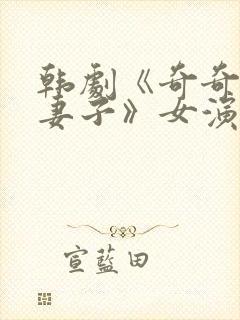 韩劇《奇奇
妻子》女演
宣藍田